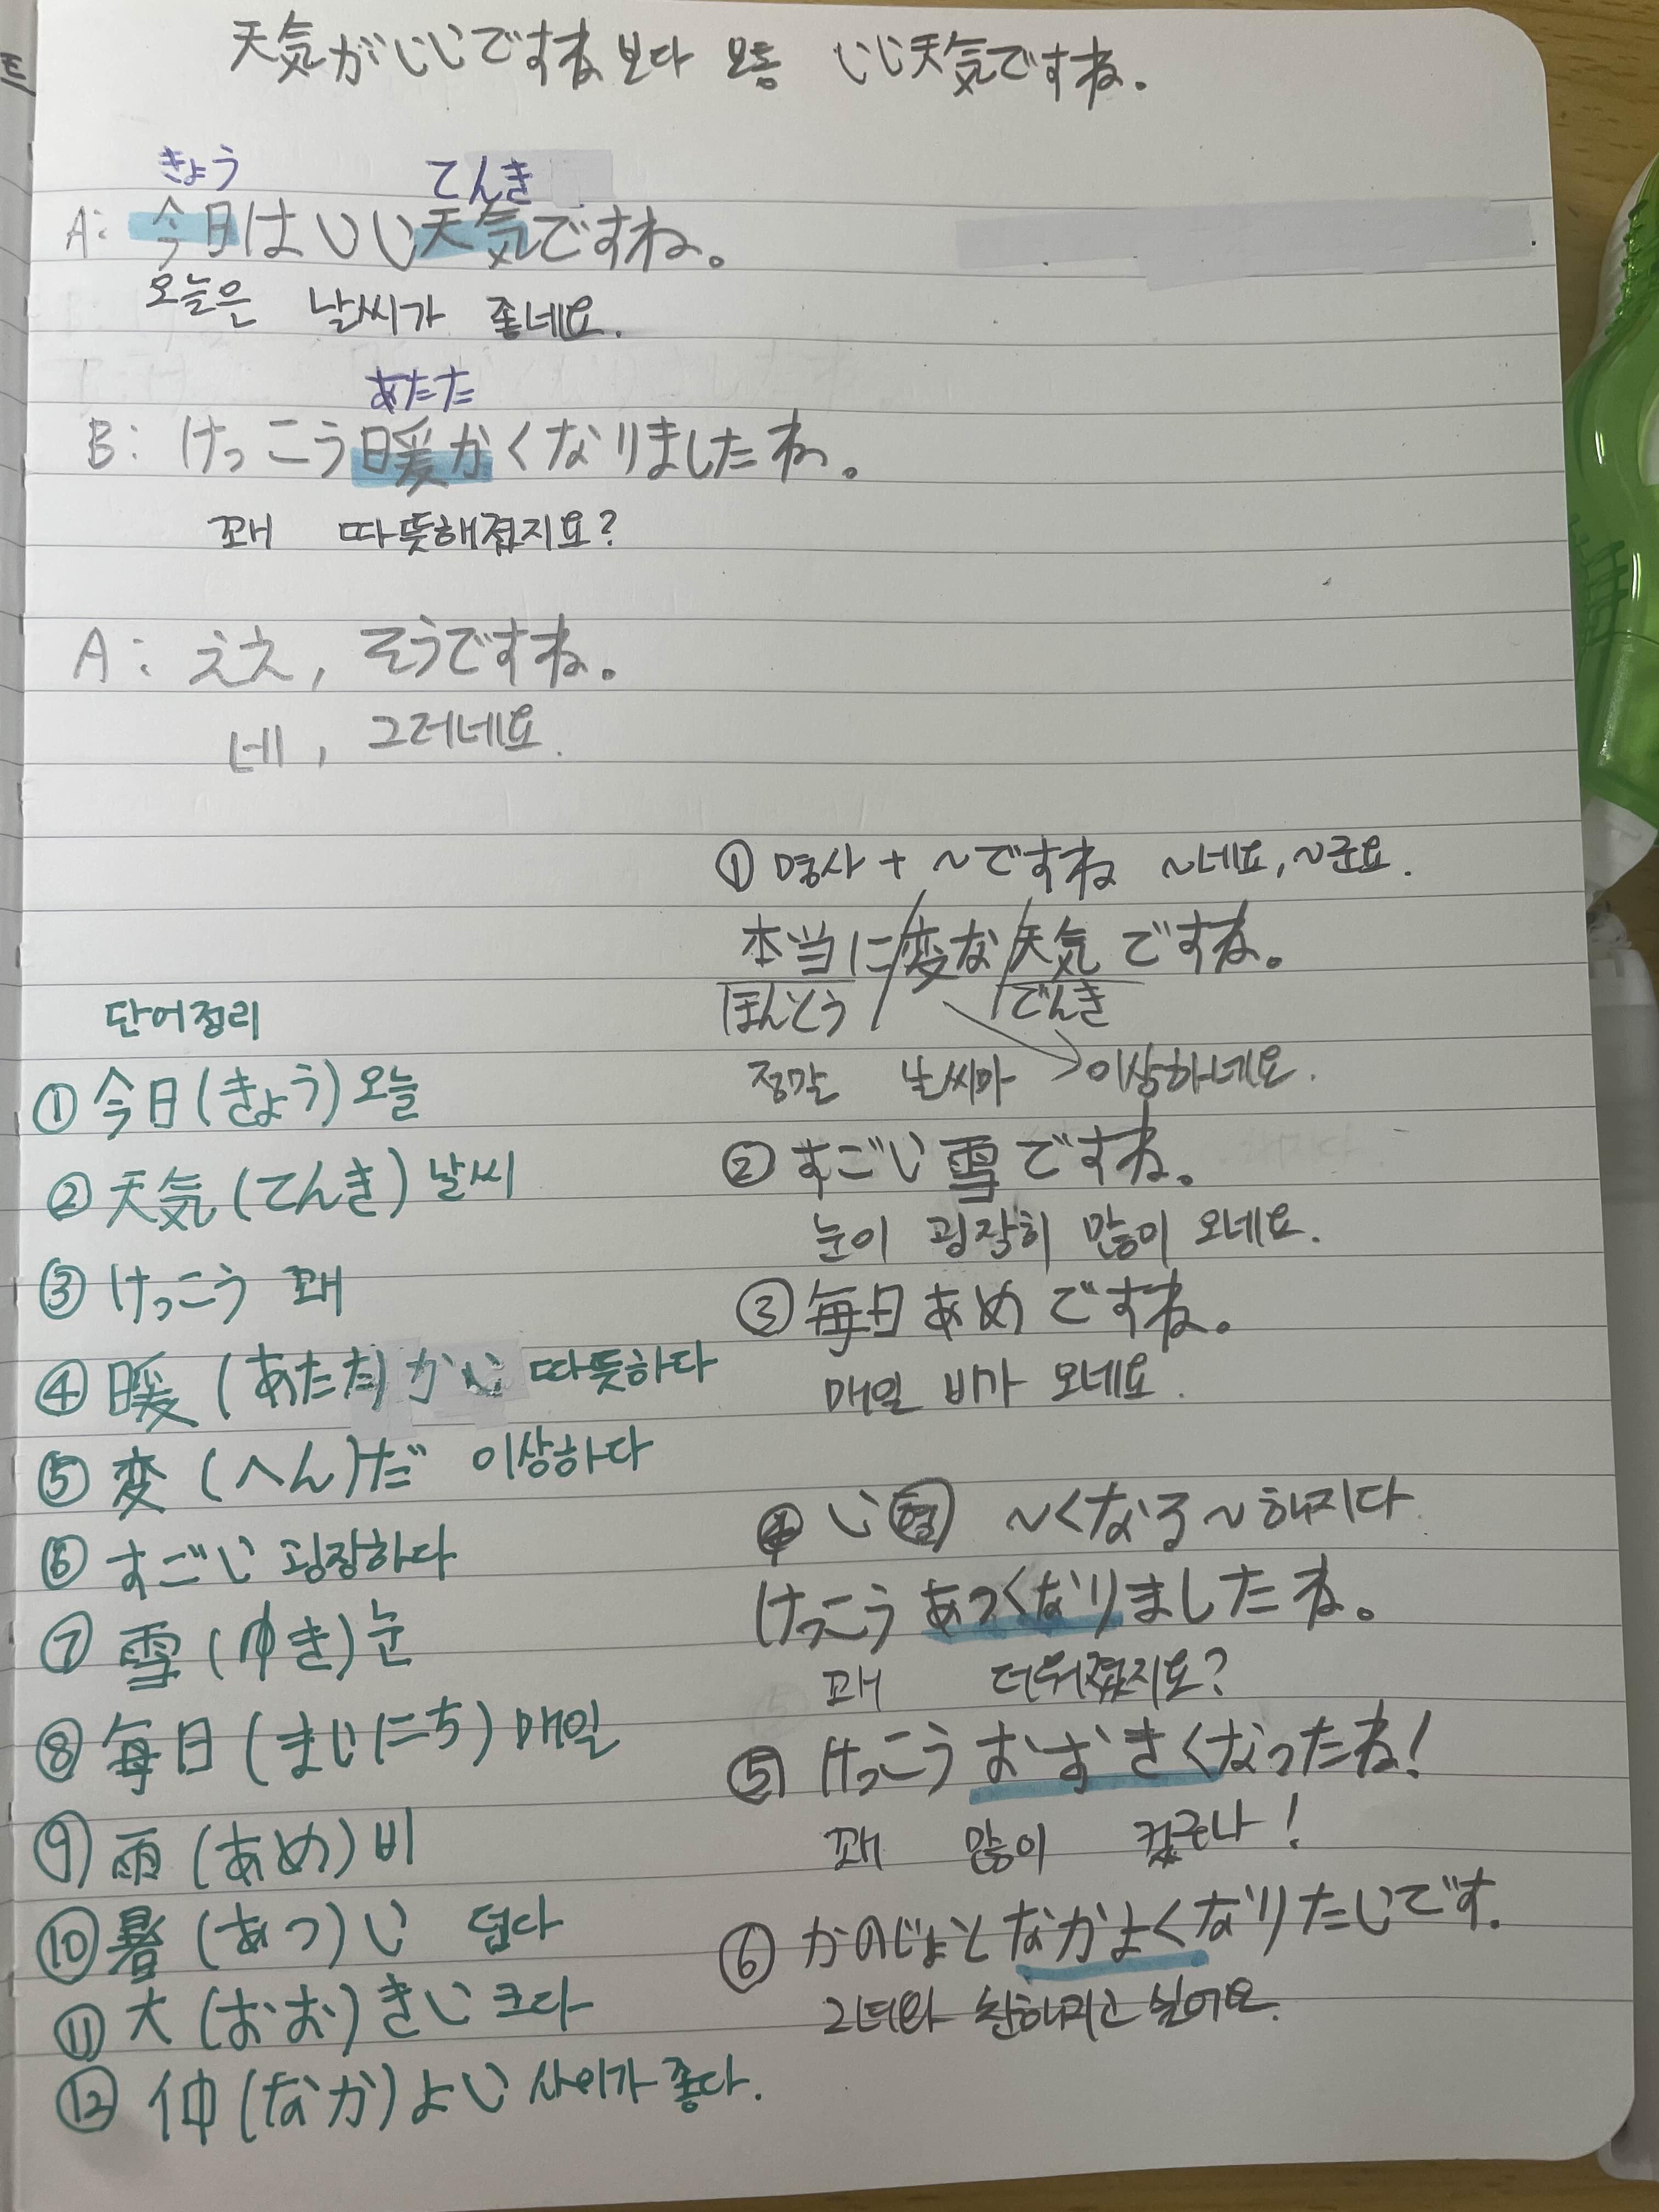 天気がいいですね 보다 보통 いい天気ですね.
きょう てんき
A: 今日はいい天気ですね。
오늘은 날씨가 좋네요.
あたた
B: けっこう暖かくなりましたね。
꽤 따뜻해졌지요?
A: ええ, そうですね。
네, 그러네요.
① 명사 + ~ですね ~네요, ~군요.
本当に/変な/天気ですね。
ほんとう でんき
정말 날씨가 이상하네요.
② すごい雪ですね。
눈이 굉장히 많이 오네요.
③ 毎日あめですね。
매일 비가 오네요.
④ い형 ~くなる ~해지다
けっこうあつくなりましたね。
꽤 더워졌지요?
⑤ けっこうおおきくなったね!
꽤 많이 컸구나!
⑥ かのじょとなかよくなりたいです.
그녀와 친해지고 싶어요.
단어정리
① 今日(きょう)오늘
② 天気(てんき)날씨
③ けっこう 꽤
④ 暖(あたた)かい 따뜻하다
⑤ 変(へん)だ 이상하다
⑥ すごい 굉장하다
⑦ 雪(ゆき)눈
⑧ 毎日(まいにち)매일
⑨ 雨(あめ)비
⑩ 暑(あつ)い 덥다
⑪ 大(おお)きい 크다
⑫ 仲(なか)よい 사이가 좋다.